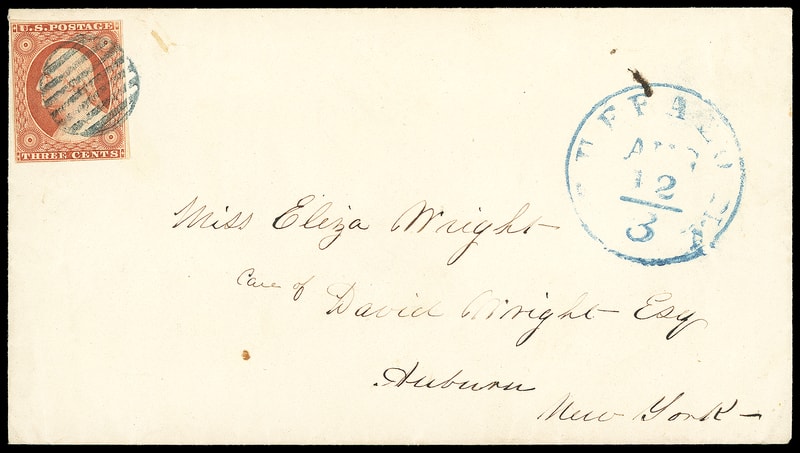 U.S. POSTAGE
THREE CENTS
BUFFALO
AUG
12
3
Miss Eliza Wright
Care of
David Wright Esq
Auburn
New York